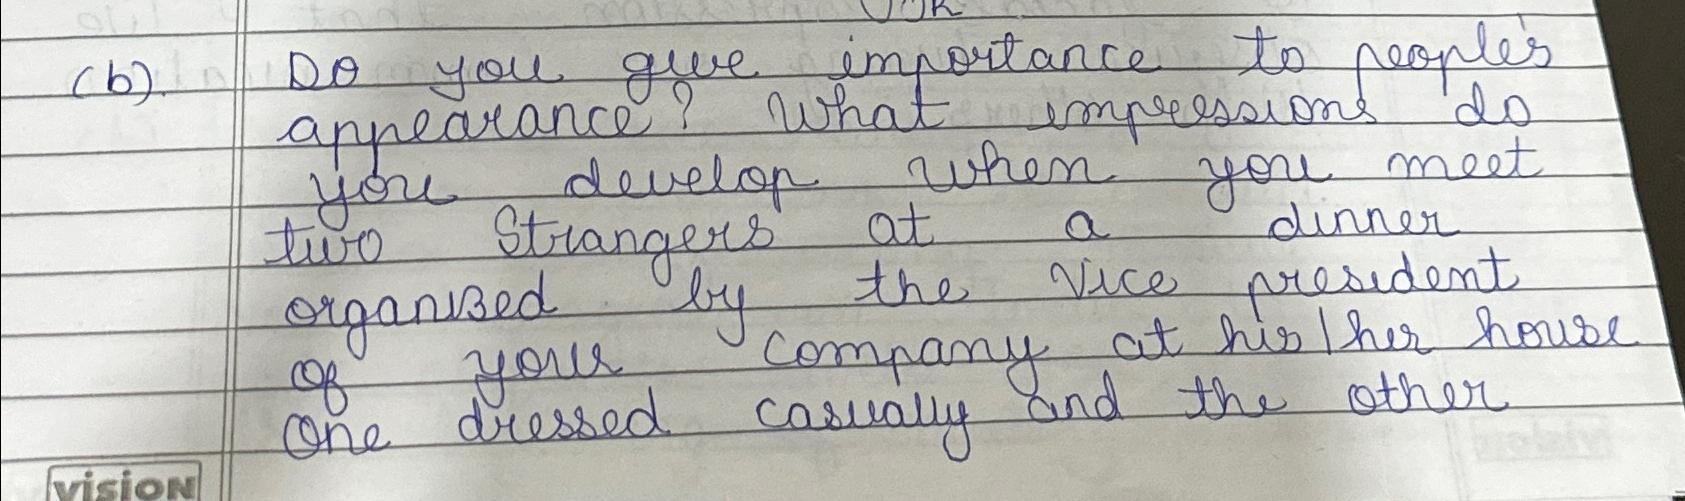 (b). Do you give importance to people's
appearance? What impressions do
you develop when you meet
two Strangers at a dinner
organised by the Vice president
of your company at his/her house
one dressed casually and the other
vision